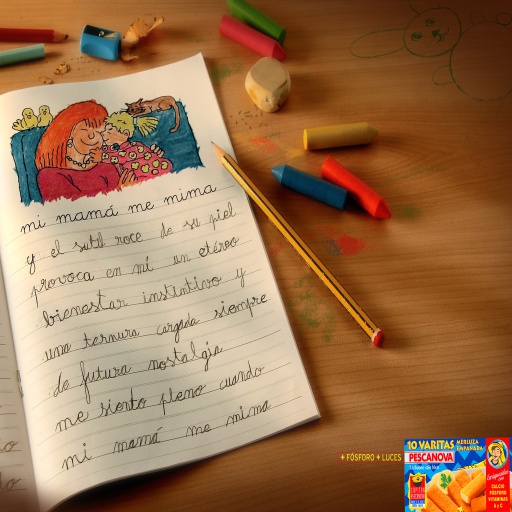 mi mamá me mima
y el sutil roce de su piel
provoca en mí un etéreo
bienestar instintivo y
una ternura cargada siempre
de futura nostalgia
me siento pleno cuando
mi mamá me mima
+ FÓSFORO + LUCES
10 VARITAS MERLUZA EMPANADA
PESCANOVA
CALCIO
FÓSFORO
VITAMINAS